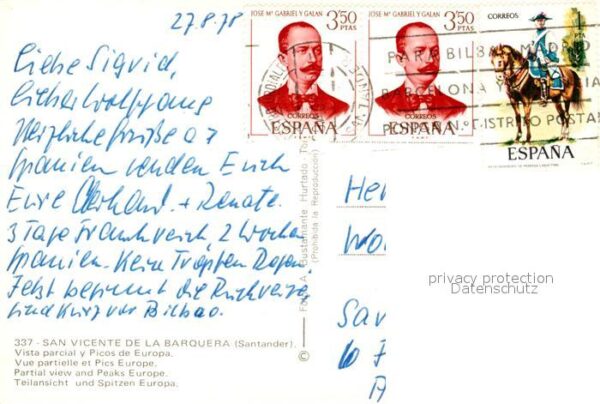 27.8.78
Liebe Sigrid,
lieber Wolfgang
Herzliche Grüße a
Spanien senden Euch
Eure + Renate.
3 Tage Frankreich, 2 Wochen
Spanien. Kein Tropfen Regen.
Jetzt beginnt die Rückreise,
sind kurz vor Bilbao.
337 - SAN VICENTE DE LA BARQUERA (Santander).
Vista parcial y Picos de Europa.
Vue partielle et Pics Europe.
Partial view and Peaks Europe.
Teilansicht und Spitzen Europa.
© Foto A. Bustamante Hurtado -
(Prohibida la Reproducción)
JOSE Mª GABRIEL Y GALAN
3'50
PTAS
CORREOS
ESPAÑA
JOSE Mª GABRIEL Y GALAN
3'50
PTAS
CORREOS
ESPAÑA
CORREOS
1
PTA
ESPAÑA
PARA BILBAO, MADRID
BARCELONA Y
DISTRITO POSTAL
Her
Wol
privacy protection
Datenschutz
Sav
6